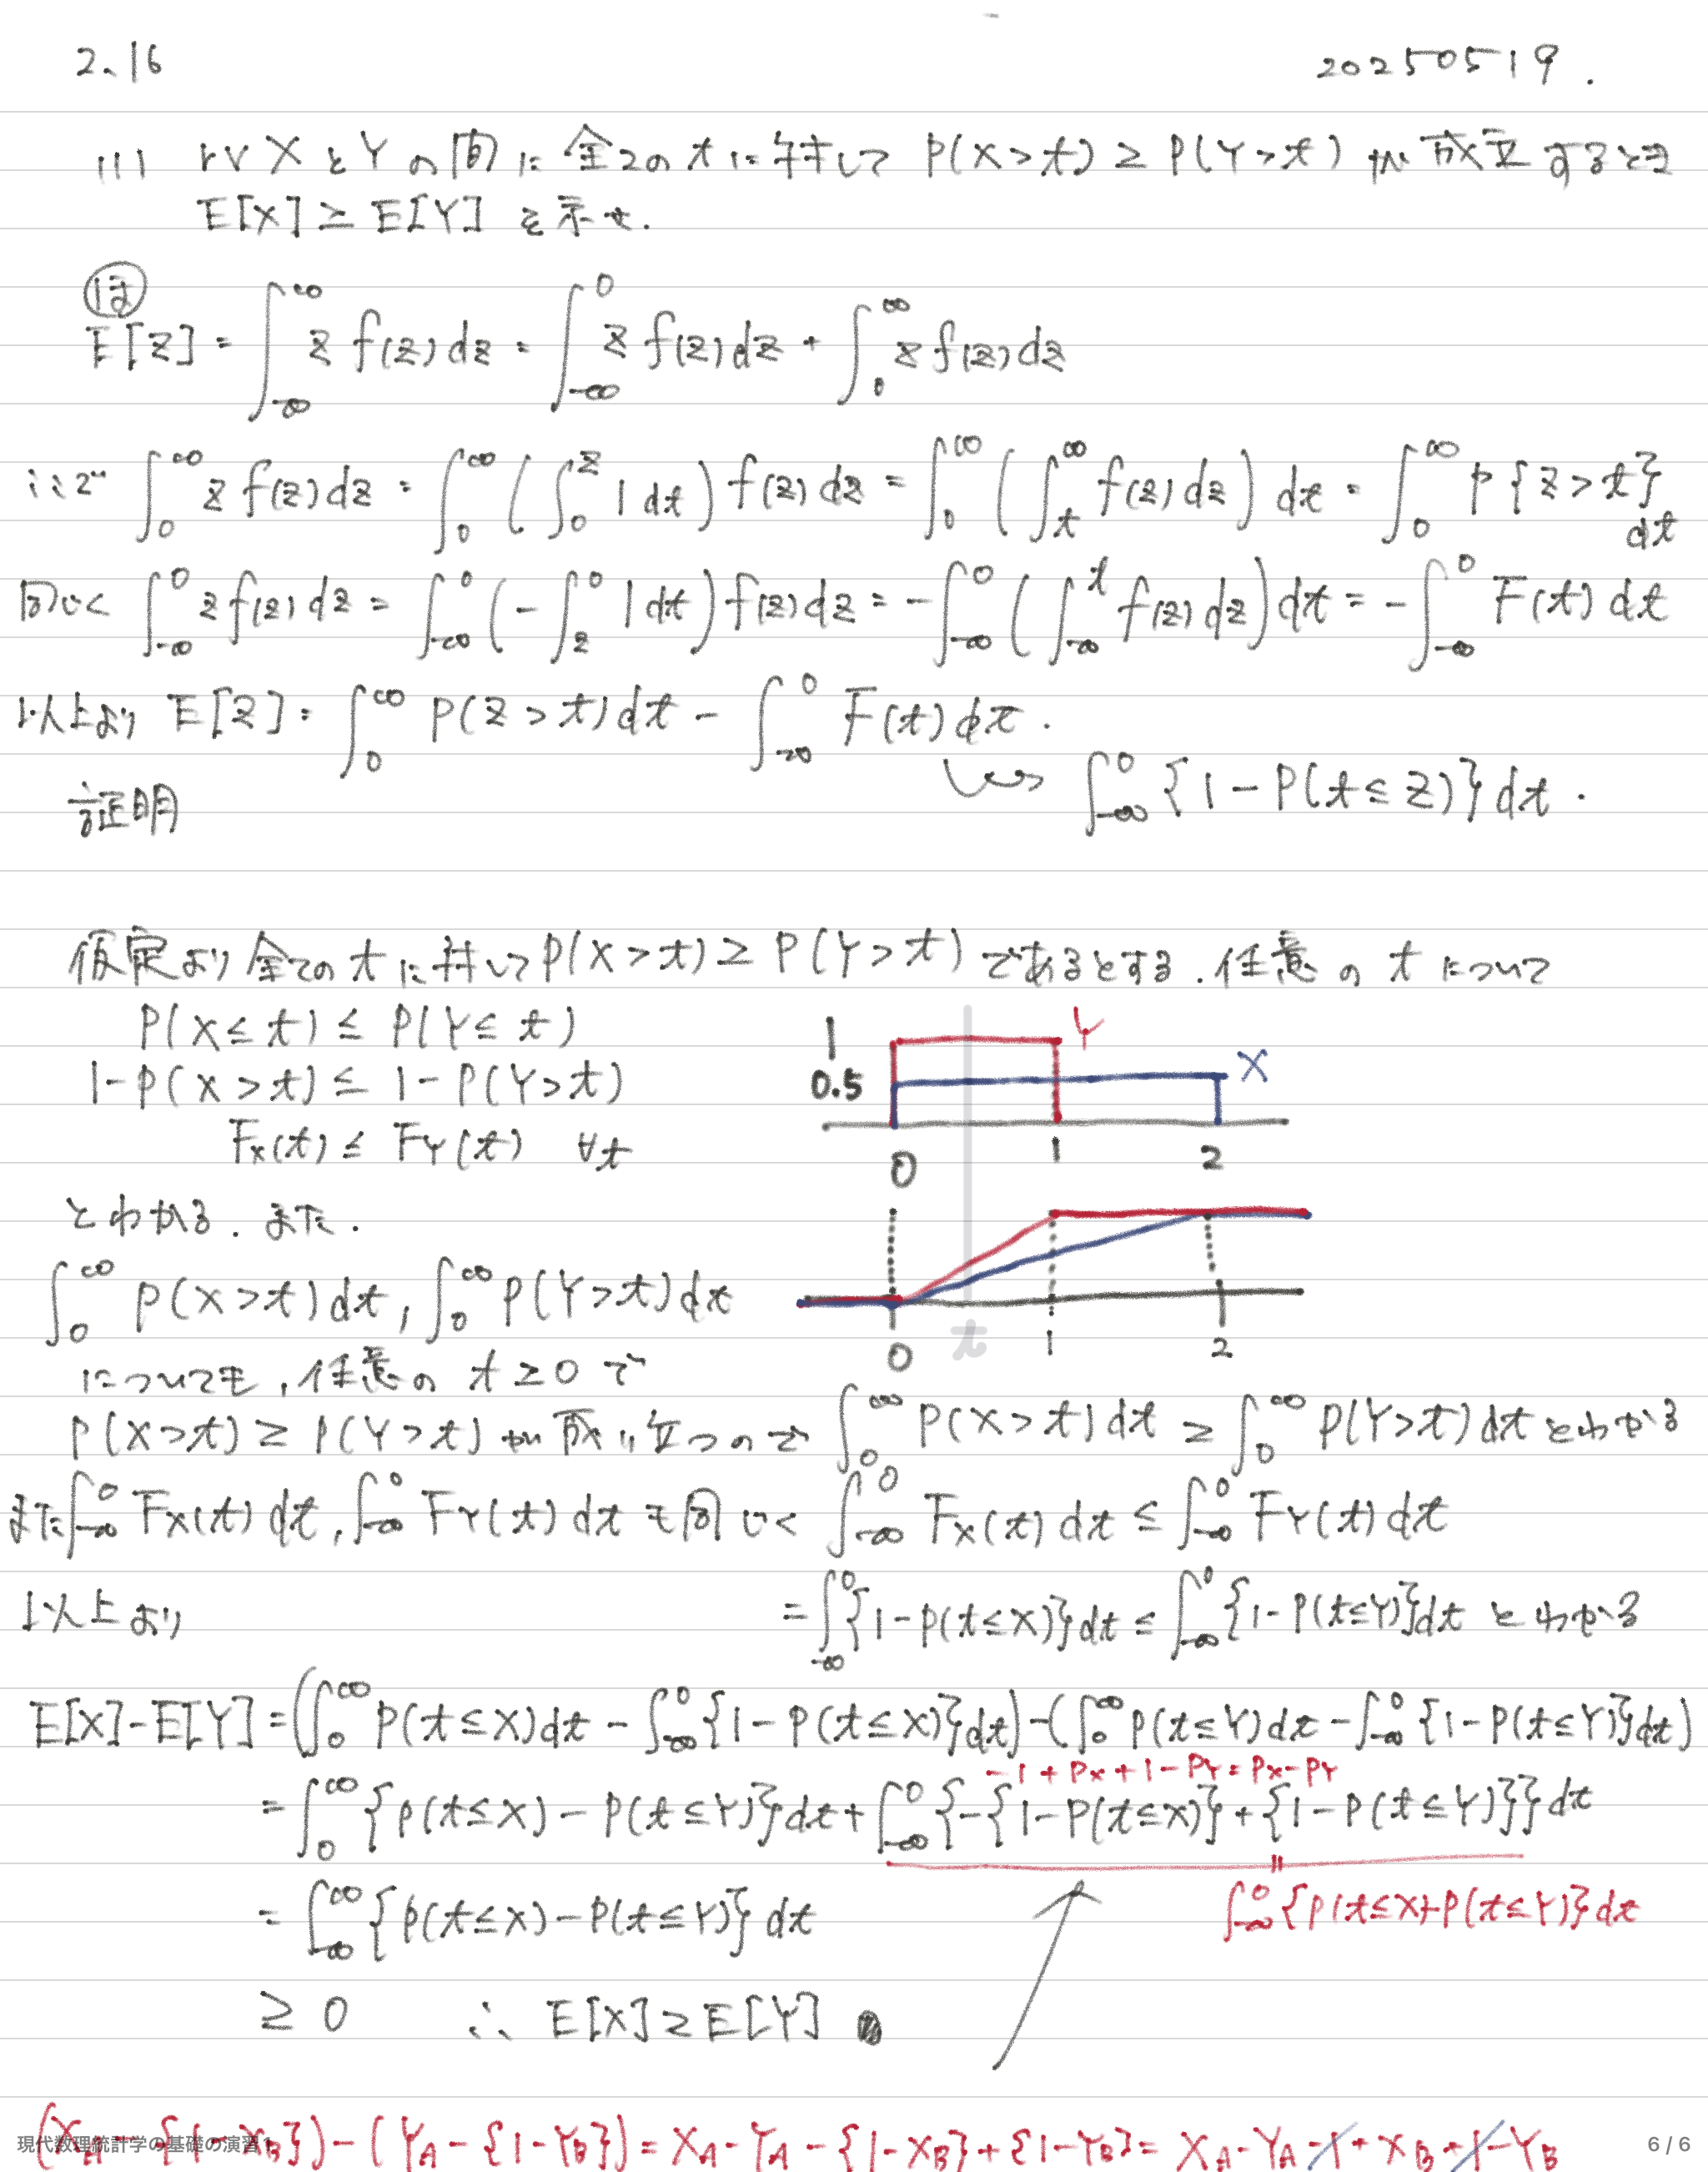 2.16
20250519.
(1) rv XとYの間に全てのtに対して P(X>t) ≥ P(Y>t) が成立するとき
E[X] ≥ E[Y] を示せ.
ほ
E[Z] = ∫_{-∞}^{∞} z f(z) dz = ∫_{-∞}^{0} z f(z) dz + ∫_{0}^{∞} z f(z) dz
ここで ∫_{0}^{∞} z f(z) dz = ∫_{0}^{∞} (∫_{0}^{z} 1 dt) f(z) dz = ∫_{0}^{∞} (∫_{t}^{∞} f(z) dz) dt = ∫_{0}^{∞} P{Z>t} dt
同じく ∫_{-∞}^{0} z f(z) dz = ∫_{-∞}^{0} (-∫_{z}^{0} 1 dt) f(z) dz = -∫_{-∞}^{0} (∫_{-∞}^{t} f(z) dz) dt = -∫_{-∞}^{0} F(t) dt
以上より E[Z] = ∫_{0}^{∞} P(Z>t) dt - ∫_{-∞}^{0} F(t) dt.
∫_{-∞}^{0} {1-P(t≤Z)} dt.
証明
仮定より全てのtに対して P(X>t) ≥ P(Y>t) であるとする. 任意の t について
P(X≤t) ≤ P(Y≤t)
1-P(X>t) ≤ 1-P(Y>t)
F_X(t) ≤ F_Y(t) ∀t
1
0.5
Y
X
0 1 2
とわかる. また.
∫_{0}^{∞} P(X>t) dt, ∫_{0}^{∞} P(Y>t) dt
0 t 1 2
についても, 任意の t≥0 で
P(X>t) ≥ P(Y>t) が成り立つので ∫_{0}^{∞} P(X>t) dt ≥ ∫_{0}^{∞} P(Y>t) dt とわかる
また ∫_{-∞}^{0} F_X(t) dt, ∫_{-∞}^{0} F_Y(t) dt も同じく ∫_{-∞}^{0} F_X(t) dt ≤ ∫_{-∞}^{0} F_Y(t) dt
= ∫_{-∞}^{0} {1-P(t≤X)} dt ≤ ∫_{-∞}^{0} {1-P(t≤Y)} dt とわかる
以上より
E[X]-E[Y] = (∫_{0}^{∞} P(t≤X) dt - ∫_{-∞}^{0} {1-P(t≤X)} dt) - (∫_{0}^{∞} P(t≤Y) dt - ∫_{-∞}^{0} {1-P(t≤Y)} dt)
-1+Px+1-PY=Px-PY
= ∫_{0}^{∞} {P(t≤X) - P(t≤Y)} dt + ∫_{-∞}^{0} {-{1-P(t≤X)} + {1-P(t≤Y)}} dt
= ∫_{-∞}^{∞} {P(t≤X) - P(t≤Y)} dt
∫_{-∞}^{0} {P(t≤X)-P(t≤Y)} dt
≥ 0 ∴ E[X] ≥ E[Y]
(X_A - {1-X_B}) - (Y_A - {1-Y_B}) = X_A - Y_A - {1-X_B} + {1-Y_B} = X_A - Y_A - 1 + X_B + 1 - Y_B
現代数理統計学の基礎の演習1
6 / 6